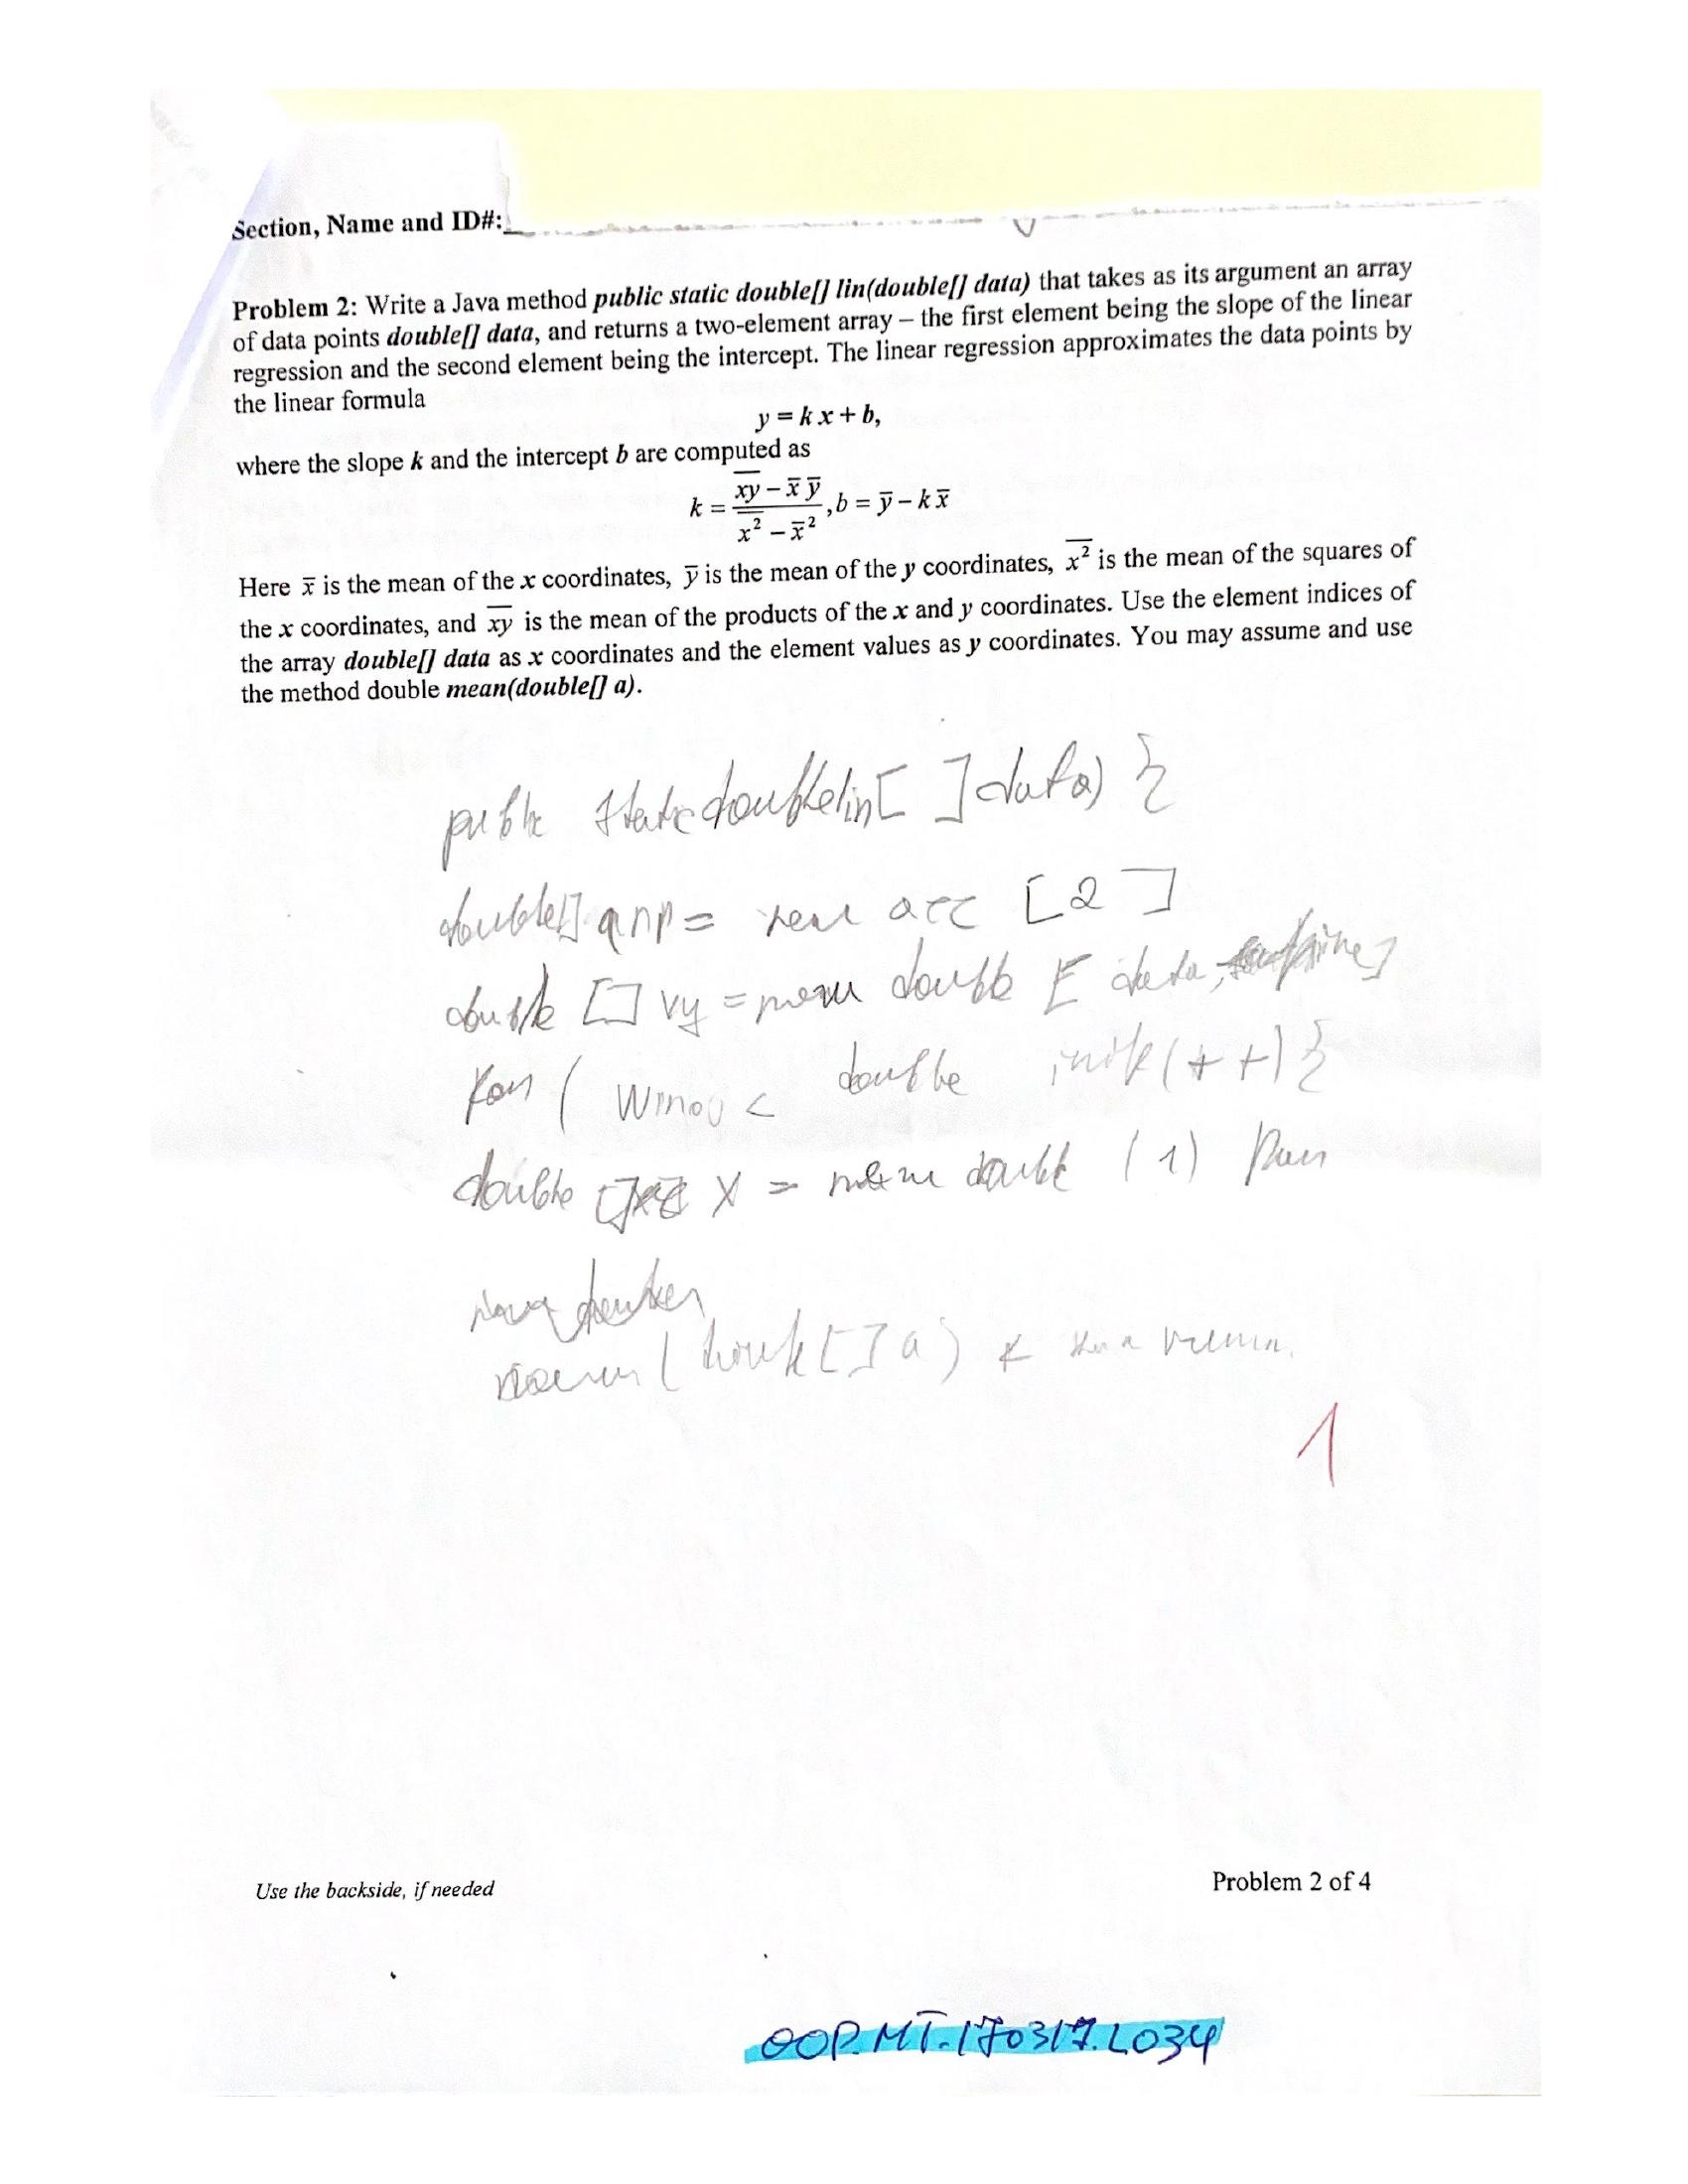 Section, Name and ID#:
Problem 2: Write a Java method public static double[] lin(double[] data) that takes as its argument an array
of data points double[] data, and returns a two-element array – the first element being the slope of the linear
regression and the second element being the intercept. The linear regression approximates the data points by
the linear formula
y = k x + b,
where the slope k and the intercept b are computed as
k = (x̅y̅ − x̅ y̅) / (x̅²̅ − x̅²), b = y̅ − k x̅
Here x̅ is the mean of the x coordinates, y̅ is the mean of the y coordinates, x̅²̅ is the mean of the squares of
the x coordinates, and x̅y̅ is the mean of the products of the x and y coordinates. Use the element indices of
the array double[] data as x coordinates and the element values as y coordinates. You may assume and use
the method double mean(double[] a).
public static double lin[ ] data) {
double[] = [2]
double [] vy = double [ data,
( < double (++) }
double [] X = double (1)
( [] a)
1
Use the backside, if needed
Problem 2 of 4
OOP.MT.170317.L034